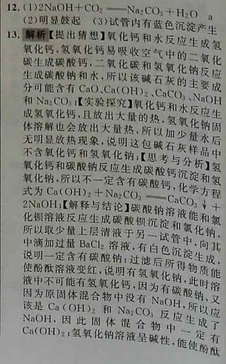 12. (1)2NaOH+CO₂══Na₂CO₃+H₂O a
(2)明显鼓起 (3)试管内有蓝色沉淀产生
13. 解析【提出猜想】氧化钙和水反应生成氢
氧化钙,氢氧化钙易吸收空气中的二氧化
碳生成碳酸钙,二氧化碳和氢氧化钠反应
生成碳酸钠和水,所以该碱石灰的主要成
分可能含有CaO、Ca(OH)₂、CaCO₃、NaOH
和Na₂CO₃;【实验探究】氧化钙和水反应生
成氢氧化钙,且放出大量的热,氢氧化钠固
体溶解也会放出大量热,所以加少量水后
无明显放热现象,说明这包碱石灰样品中
不含氧化钙和氢氧化钠;【思考与分析】氢
氧化钙与碳酸钠反应生成碳酸钙沉淀和氢
氧化钠,所以不一定含有碳酸钙,化学方程
式为Ca(OH)₂+Na₂CO₃══CaCO₃↓+
2NaOH;【解释与结论】碳酸钠溶液能和氯
化钡溶液反应生成碳酸钡沉淀和氯化钠,
所以取少量上层清液于另一试管中,向其
中滴加过量BaCl₂溶液,有白色沉淀生成,
说明一定含有碳酸钠;过滤后所得物质能
使酚酞溶液变红,说明有氢氧化钠,此时溶
液中不可能有氢氧化钙,因为有碳酸钠,又
因为原固体混合物中没有NaOH,所以应
该是Ca(OH)₂和Na₂CO₃反应生成了
NaOH,因此固体混合物中一定有
Ca(OH)₂;氢氧化钠溶液呈碱性,能使酚酞